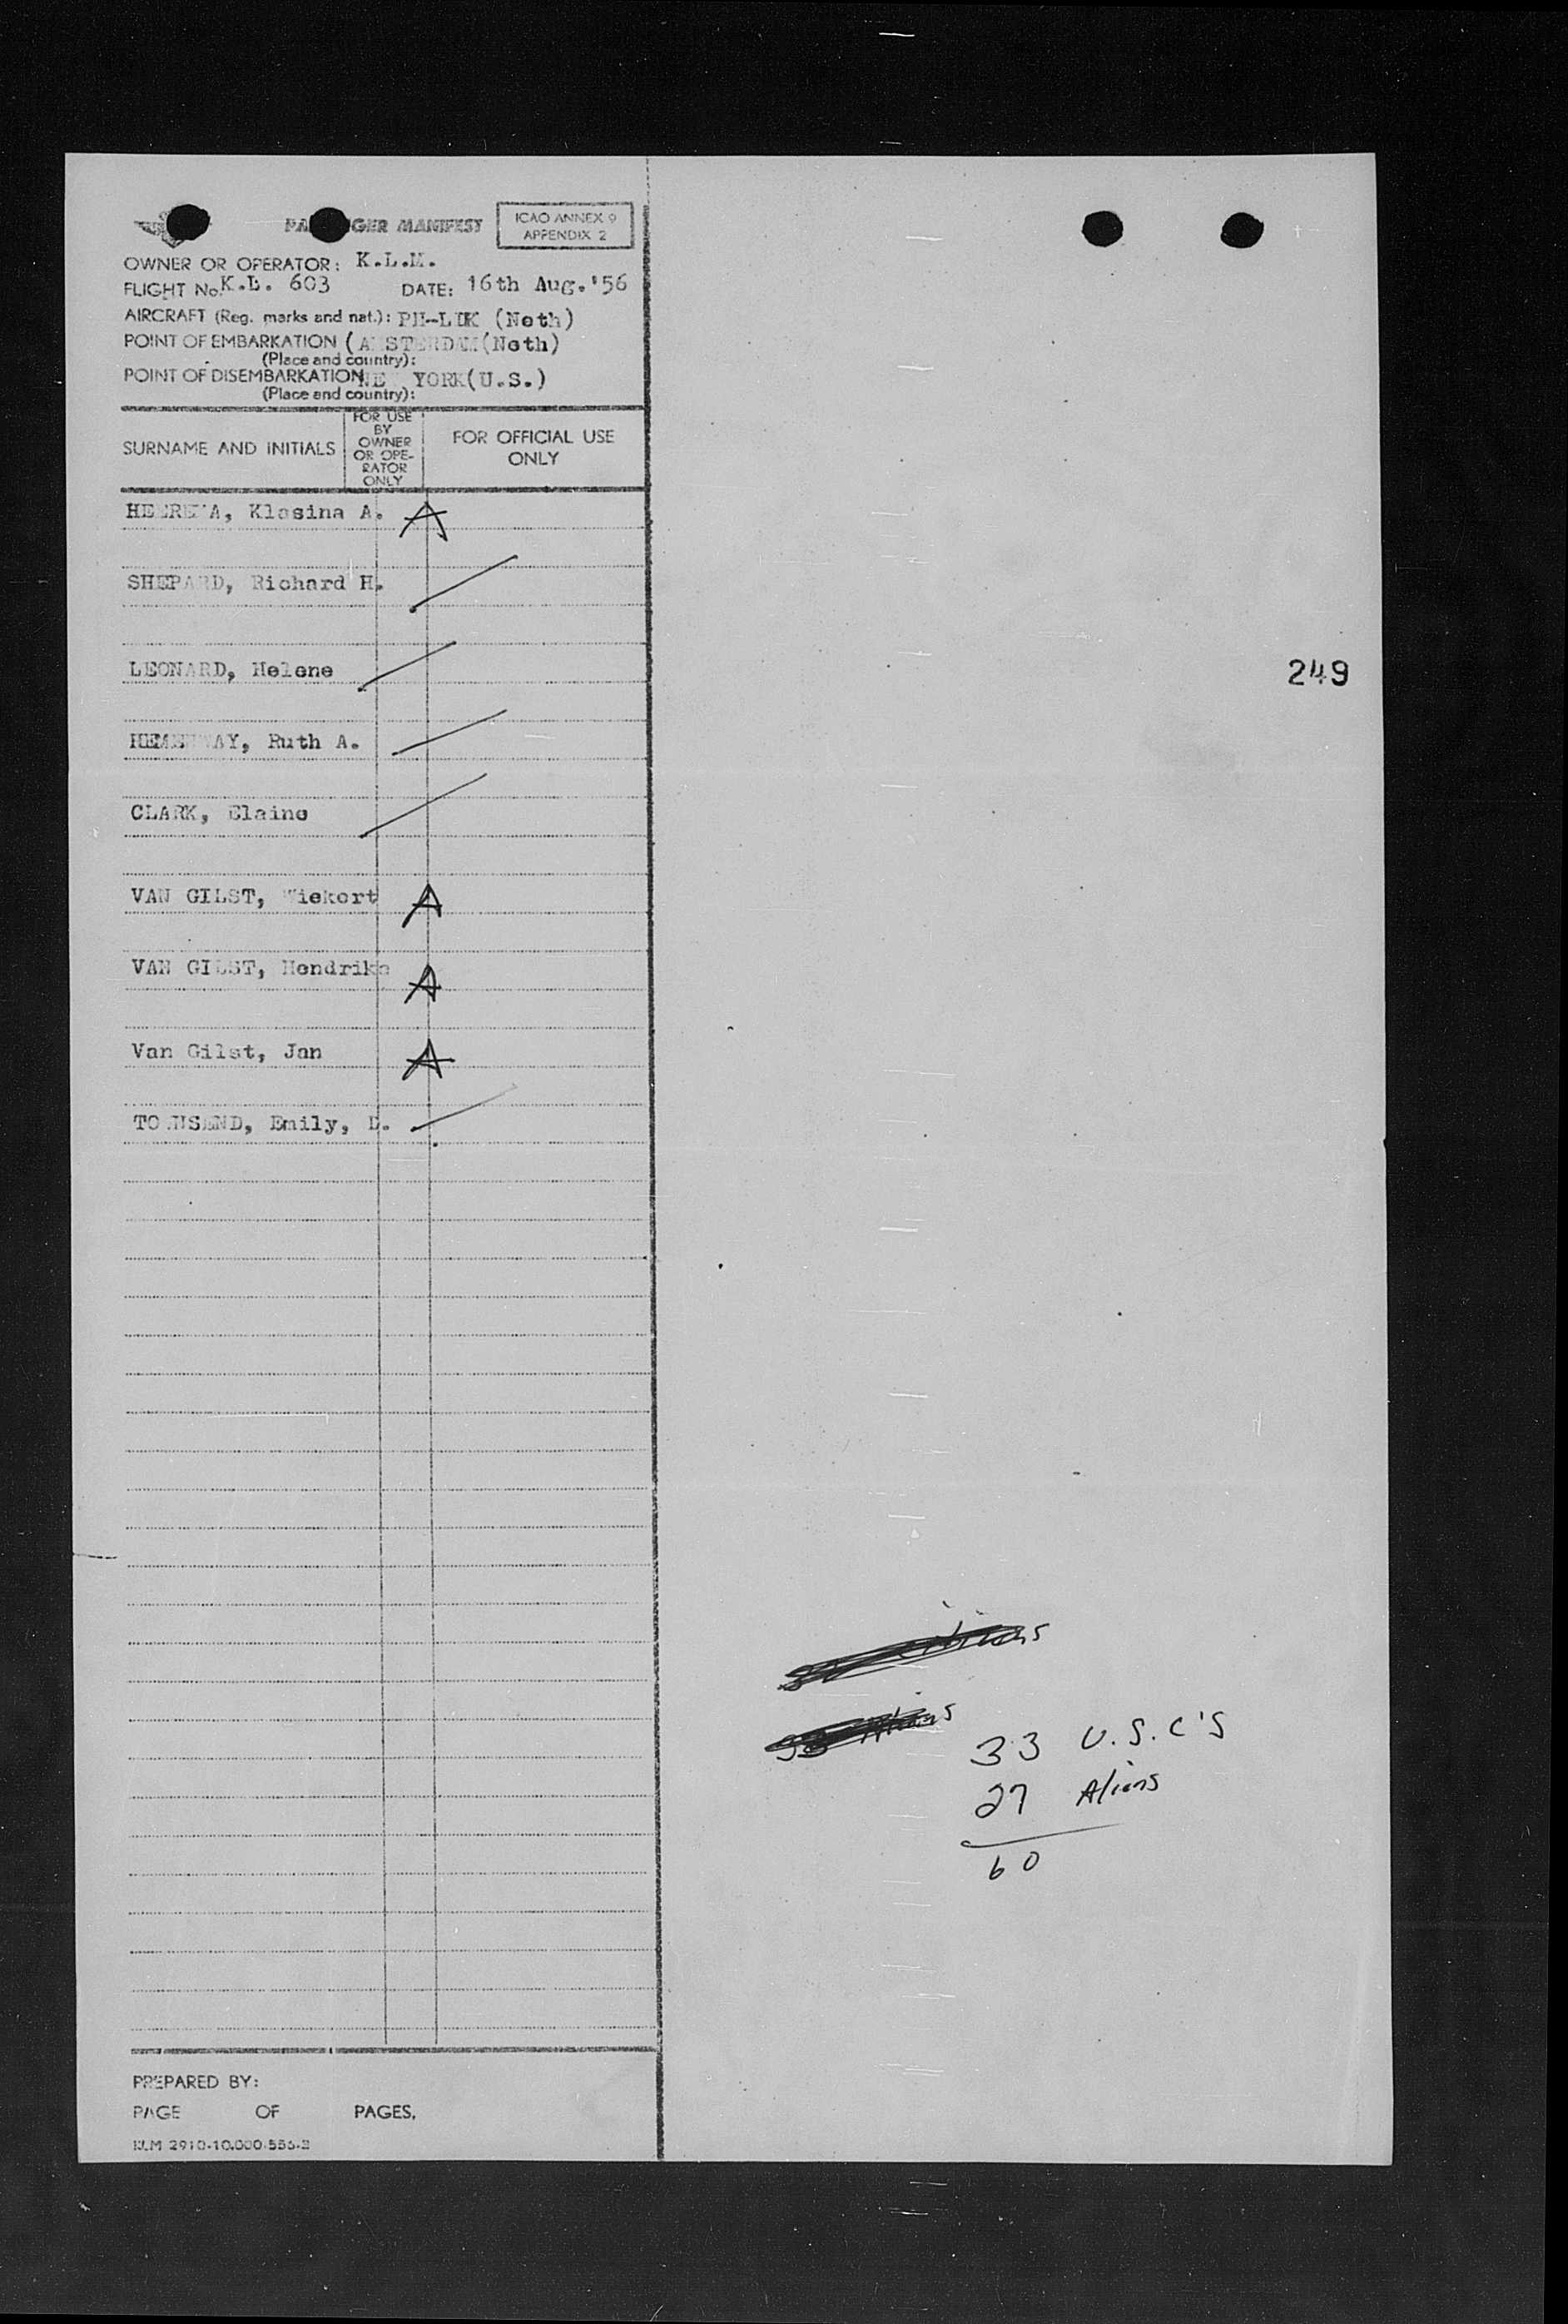 PASSENGER MANIFEST
ICAO ANNEX 9
APPENDIX 2
OWNER OR OPERATOR: K.L.M.
FLIGHT No. K.L. 603 DATE: 16th Aug.'56
AIRCRAFT (Reg. marks and nat.): (Neth)
POINT OF EMBARKATION (AMSTERDAM(Neth)
(Place and country):
POINT OF DISEMBARKATION NEW YORK(U.S.)
(Place and country):
SURNAME AND INITIALS
FOR USE
BY
OWNER
OR OPE-
RATOR
ONLY
FOR OFFICIAL USE
ONLY
Klasina A. A
SHEPARD, Richard H.
LEONARD, Helene
HEMENWAY, Ruth A.
CLARK, Elaine
VAN GILST, Wiekert A
VAN GILST, Hendrika A
Van Gilst, Jan A
TOWNSEND, Emily, D.
249
33 U.S.C'S
27 Aliens
60
PREPARED BY:
PAGE OF PAGES.
KLM 2910-10.000